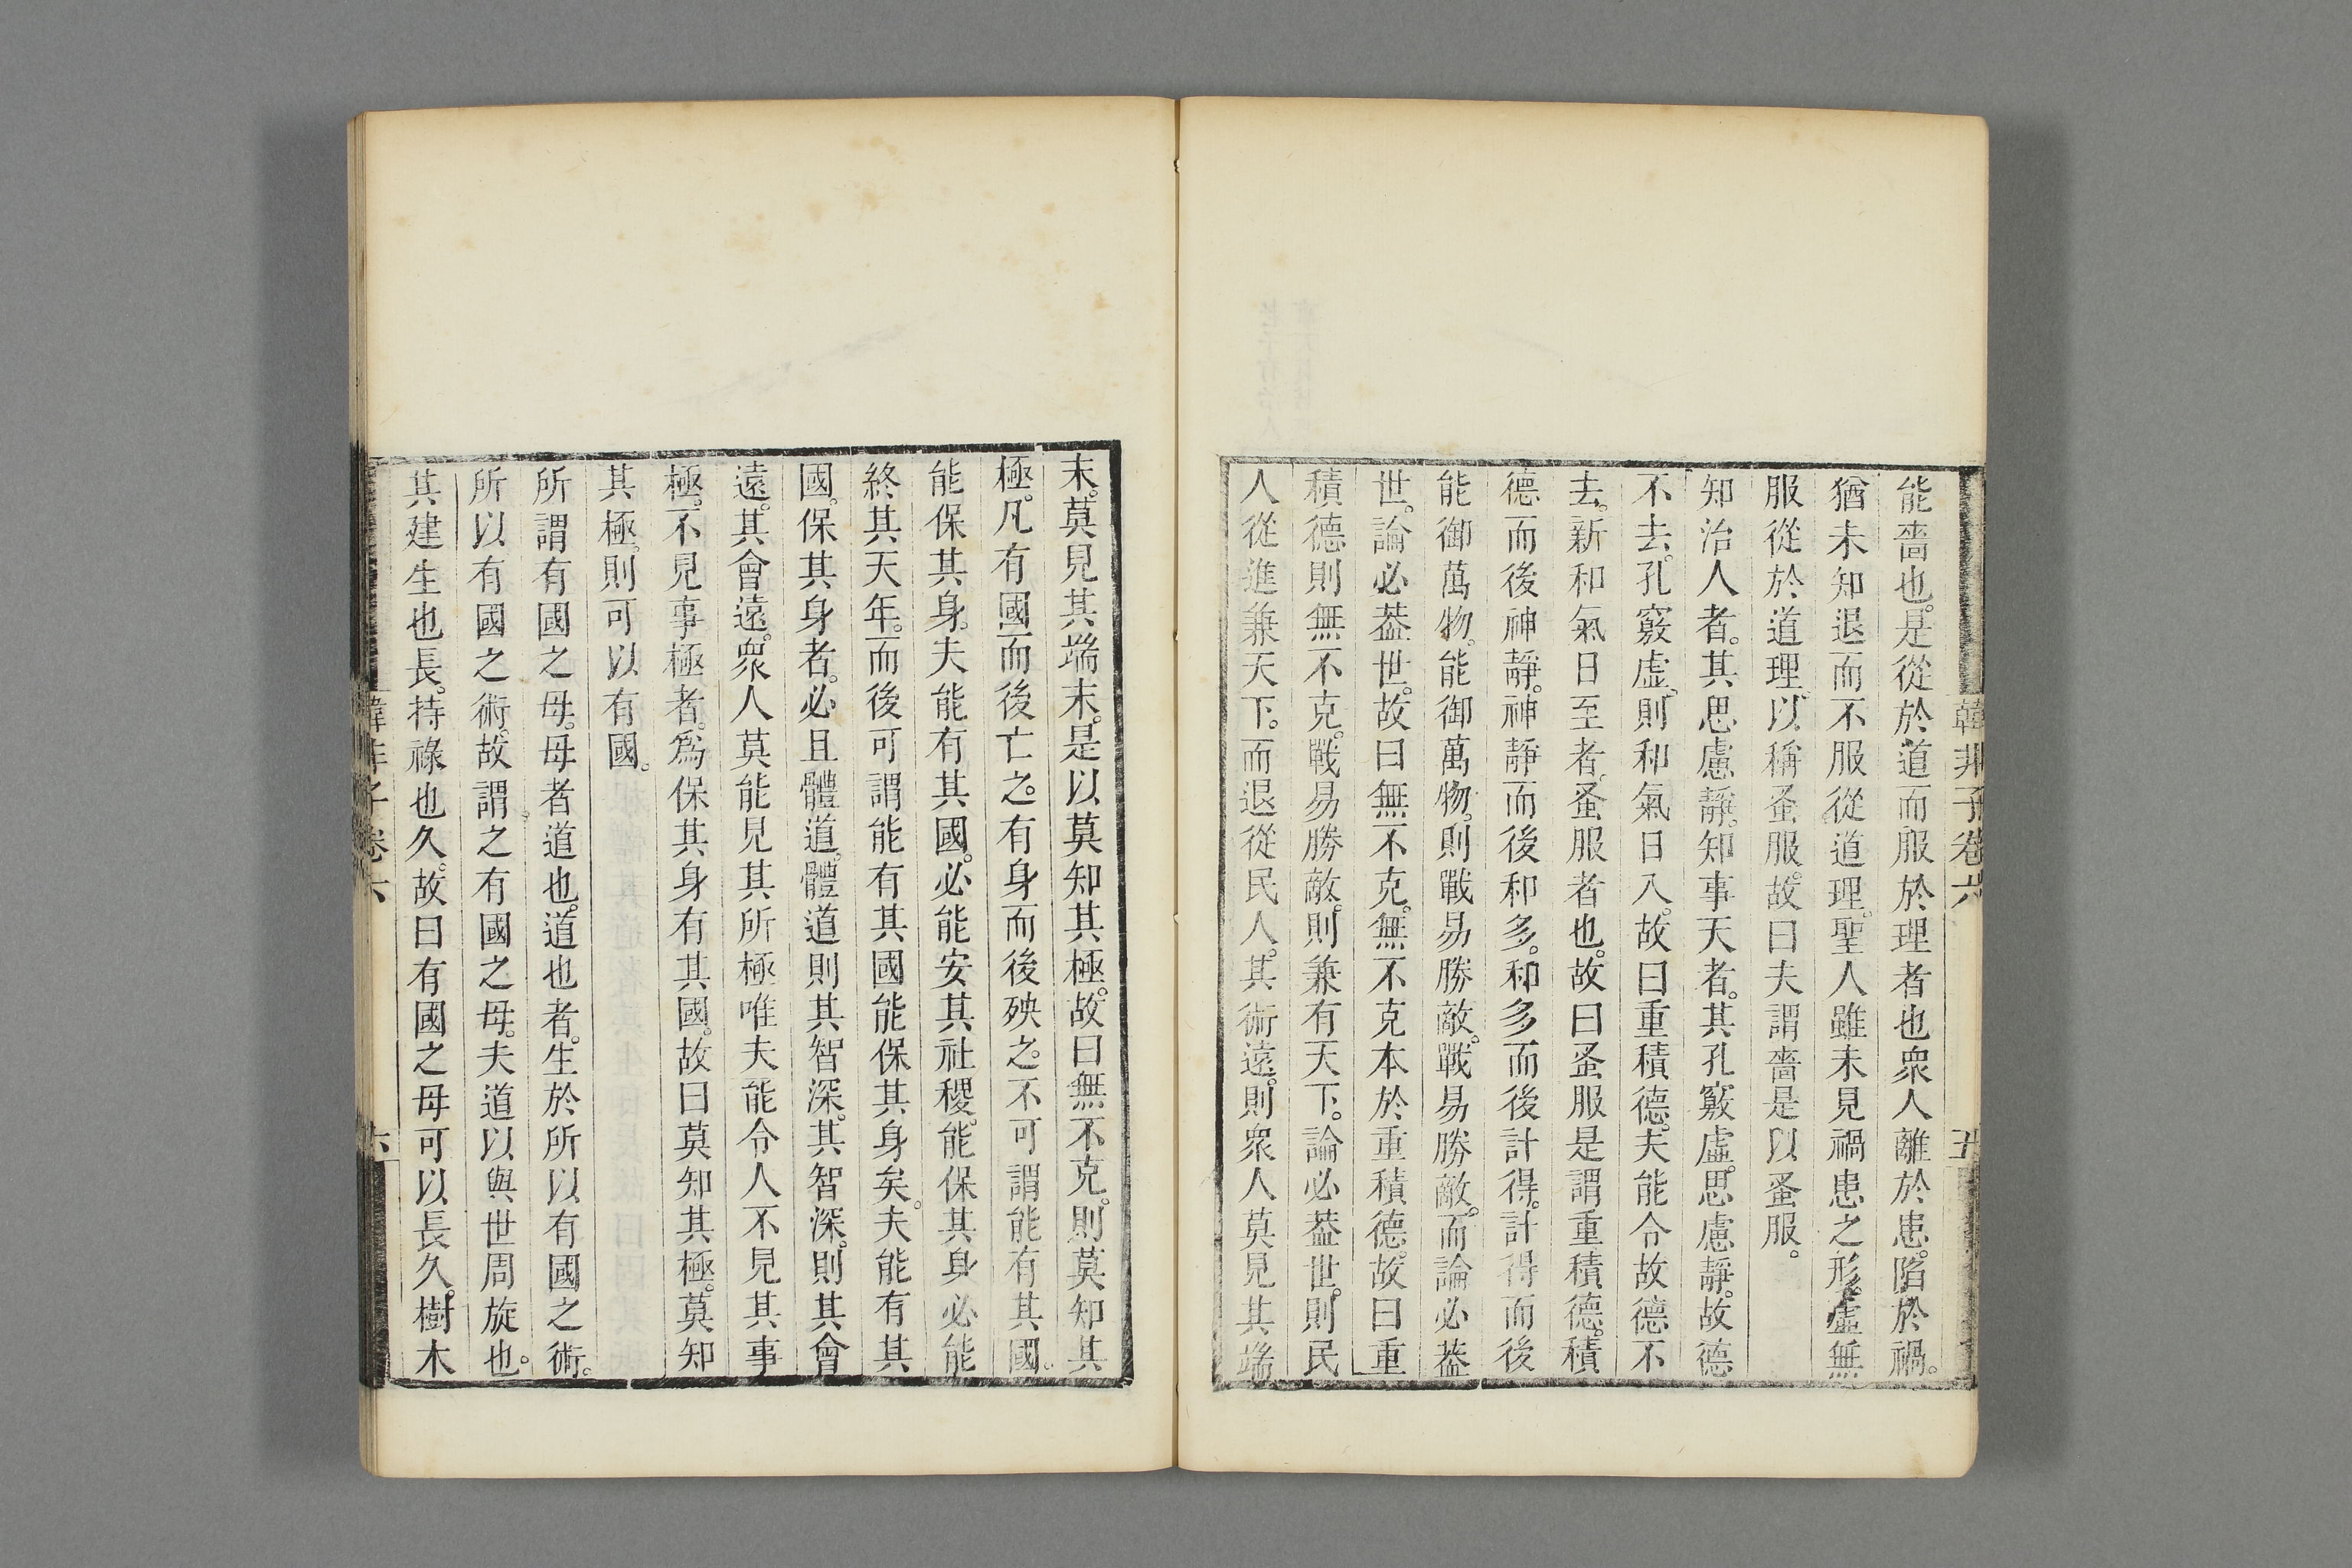 韓非子卷六 五
能嗇也。是從於道而服於理者也衆人離於患。陷於禍。
猶未知退而不服從道理。聖人雖未見禍患之形。虛無
服從於道理。以稱蚤服。故曰夫謂嗇是以蚤服。
知治人者。其思慮靜。知事天者。其孔竅虛。思慮靜。故德
不去。孔竅虛。則和氣日入。故曰重積德。夫能令故德不
去。新和氣日至者。蚤服者也。故曰蚤服是謂重積德。積
德而後神靜。神靜而後和多。和多而後計得。計得而後
能御萬物。能御萬物。則戰易勝敵。戰易勝敵。而論必葢
世。論必葢世。故曰無不克。無不克本於重積德。故曰重
積德則無不克。戰易勝敵。則兼有天下。論必葢世。則民
人從進兼天下。而退從民人。其術遠。則衆人莫見其端
末。莫見其端末。是以莫知其極。故曰無不克。則莫知其
極。凡有國而後亡之。有身而後殃之。不可謂能有其國。
能保其身。夫能有其國。必能安其社稷。能保其身必能
終其天年。而後可謂能有其國能保其身矣。夫能有其
國。保其身者。必且體道。體道則其智深。其智深。則其會
遠。其會遠。衆人莫能見其所極唯夫能令人不見其事
極。不見事極者。爲保其身有其國。故曰莫知其極。莫知
其極。則可以有國。
所謂有國之母。母者道也。道也者。生於所以有國之術。
所以有國之術。故謂之有國之母。夫道以與世周旋也。
其建生也長。持祿也久。故曰有國之母可以長久。樹木
韓非子卷六 六